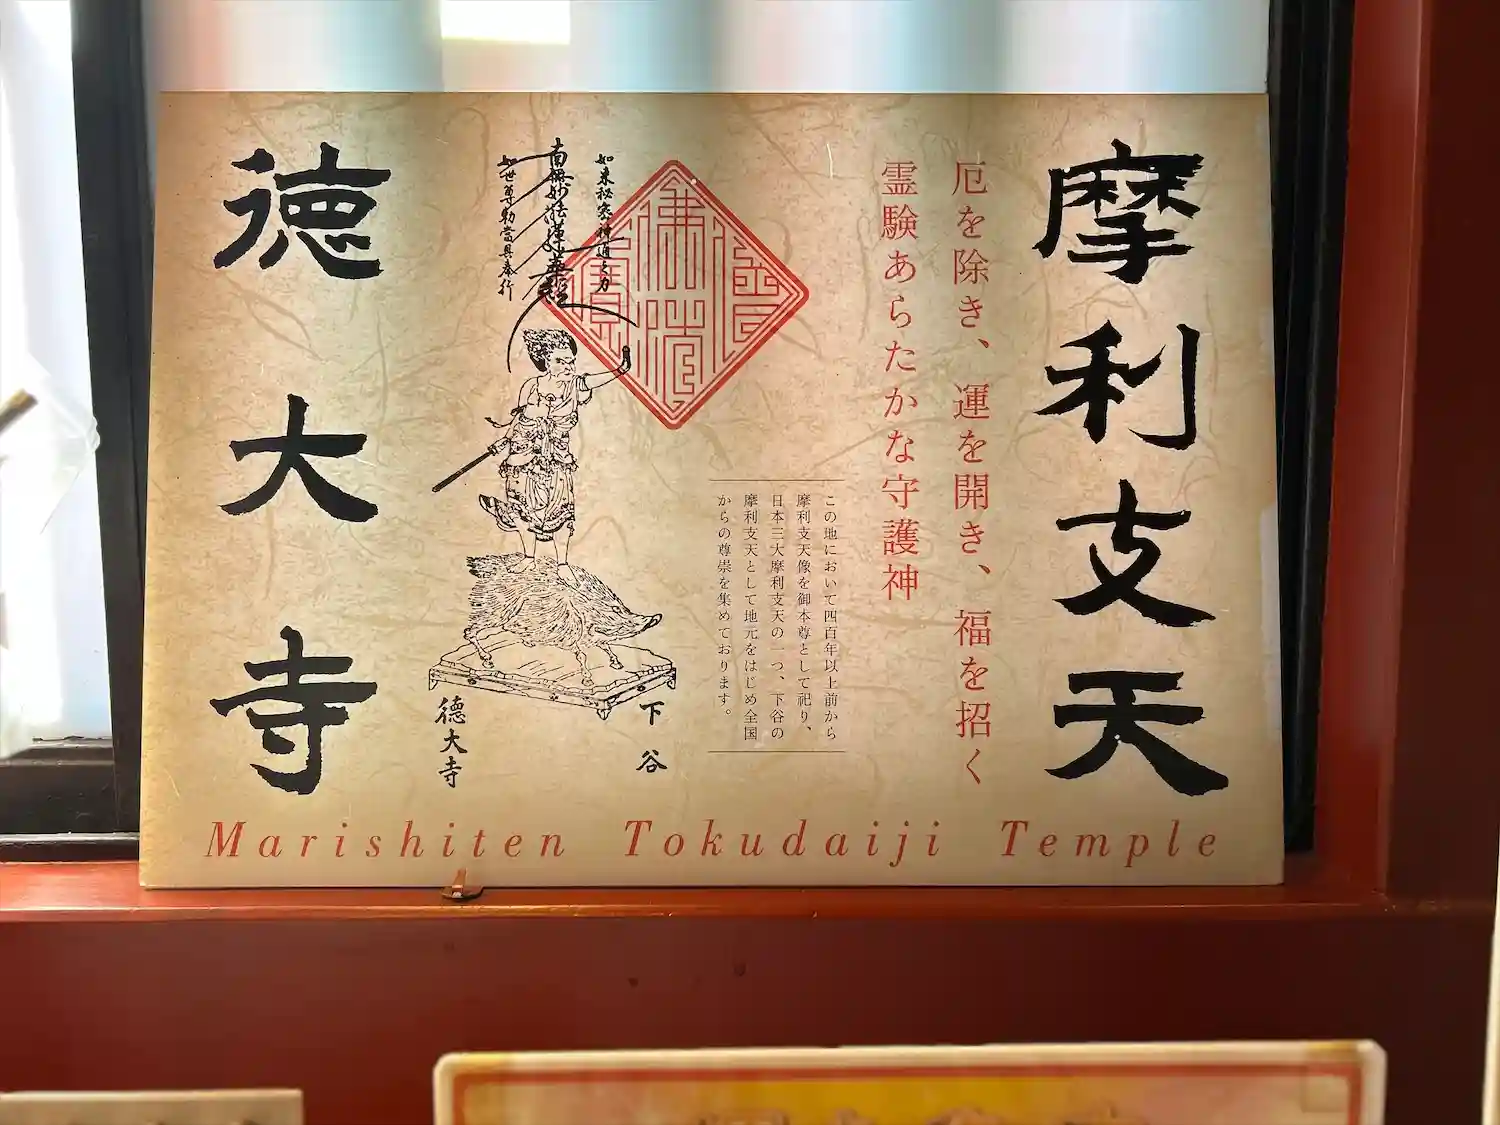 摩利支天
厄を除き、運を開き、福を招く
霊験あらたかな守護神
この地において四百年以上前から
摩利支天像を御本尊として祀り、
日本三大摩利支天の一つ、下谷の
摩利支天として地元をはじめ全国
からの尊崇を集めております。
如来秘密神通之力
南無妙法蓮華経
如世尊勅當具奉行
下谷
徳大寺
徳大寺
Marishiten Tokudaiji Temple